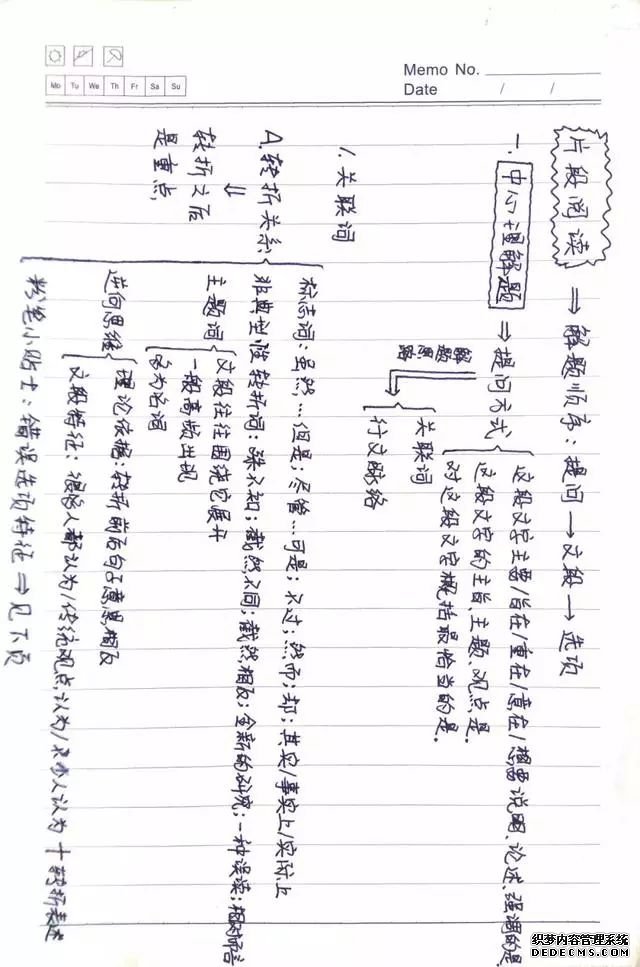 Memo No.
Date / /
Mo Tu We Th Fr Sa Su
片段阅读 ⇒ 解题顺序：提问 → 文段 → 选项
一. 中心理解题 ⇒ 提问方式
这段文字主要/旨在/重在/意在/想要说明、论述、强调的是
这段文字的主旨、主题、观点是.
对这段文字概括最恰当的是.
解题思路
关联词
行文脉络
1. 关联词
A. 转折关系
⇓
转折之后
是重点,
标志词：虽然…但是；尽管…可是；不过；然而；却；其实/事实上/实际上
非典型性转折词：殊不知；截然不同；截然相反；全新的研究；一种误读；相对而言
主题词
文段往往围绕它展开
一般高频出现
多为名词
逆向思维
理论依据：转折前后句子意思相反
文段特征：很多人都认为/传统观点认为/不少人认为 + 转折表述
粉笔小贴士：错误选项特征 ⇒ 见下页
织梦内容管理系统
DEDECMS.COM